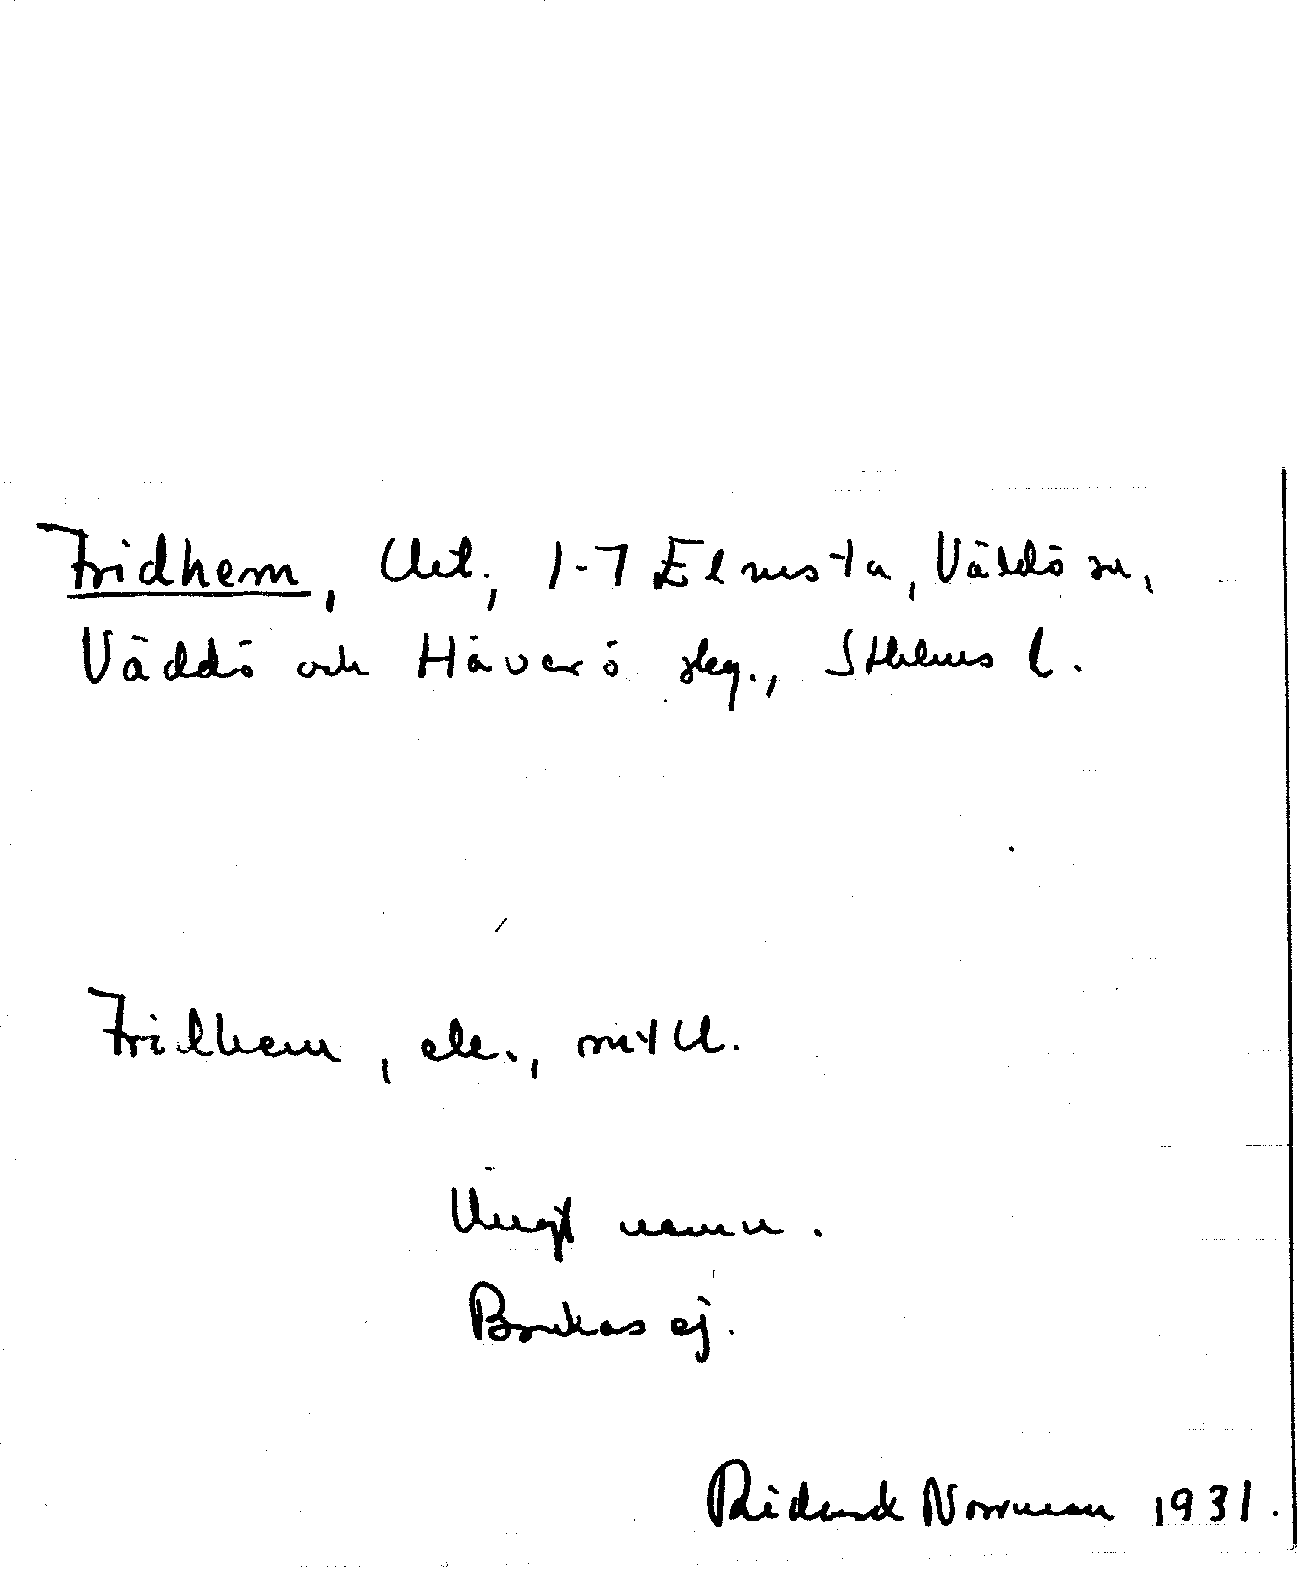 Fridhem, Urt., 1-7 Elmsta, Väddö sn,
Väddö och Häverö skg., Sthlms l.
Fridhem, ele.,
Ungt namn.
Brukas ej.
Rickard Norrman 1931.